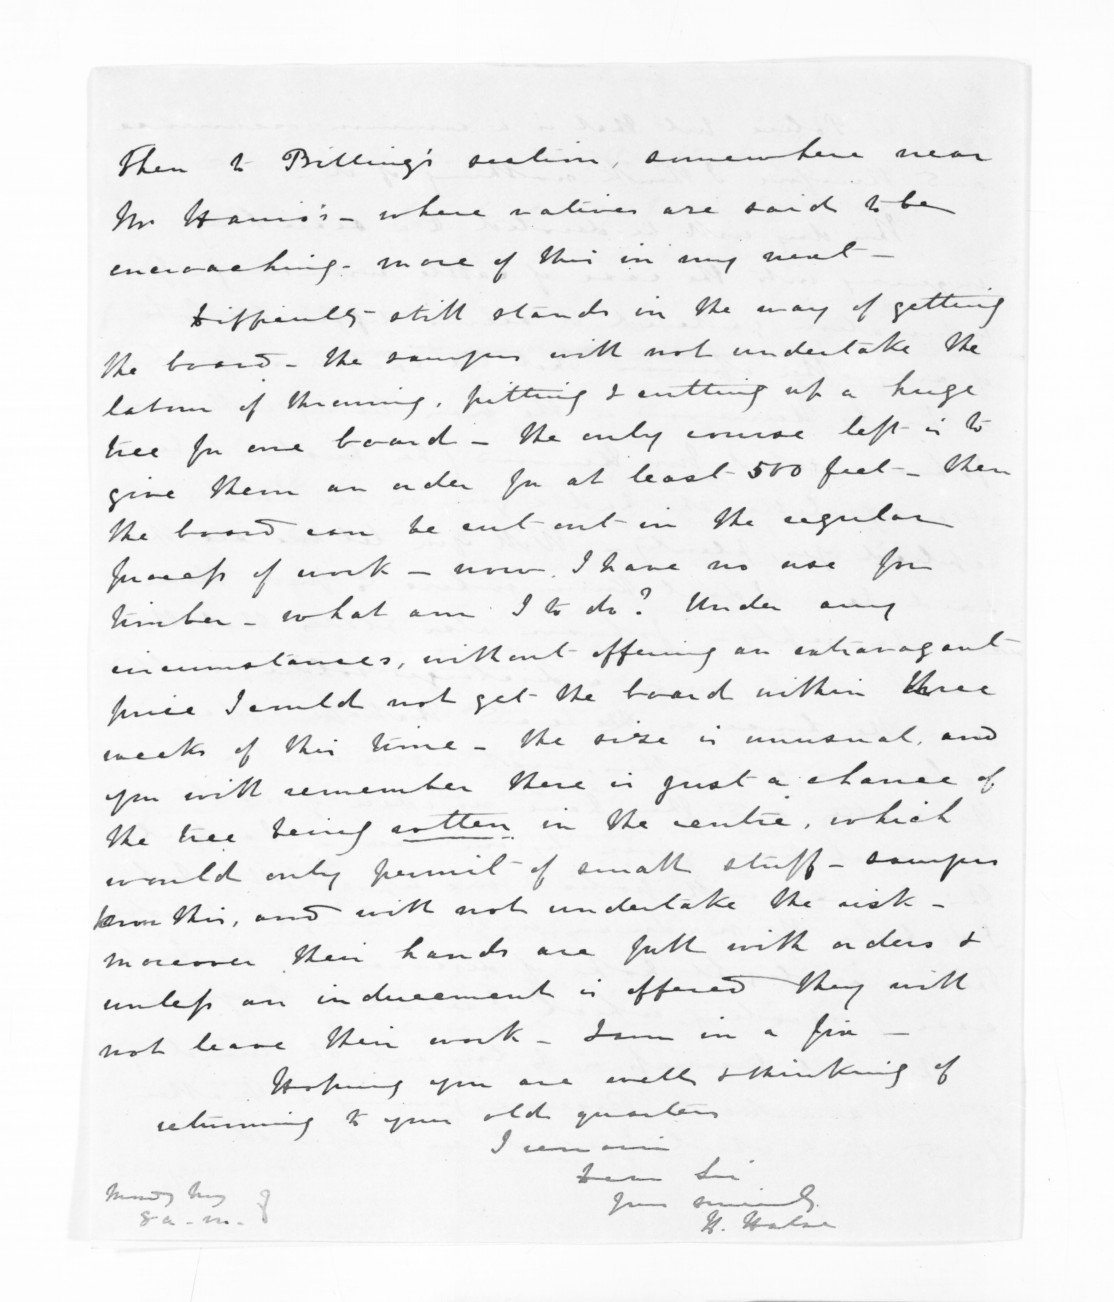 Then to Billing's section, somewhere near
Mr Harris's - where natives are said to be
encroaching - more of this in my next -
Difficulty still stands in the way of getting
the board - the sawyers will not undertake the
labour of throwing, pitting & cutting up a huge
tree for one board - the only course left is to
give them an order for at least 500 feet - then
the board can be cut out in the regular
process of work - now I have no use for
timber - what am I to do? Under any
circumstances, without offering an extravagant
price I could not get the board within three
weeks of this time - the size is unusual, and
you will remember there is just a chance of
the tree being rotten in the centre, which
would only permit of small stuff - sawyers
know this, and will not undertake the risk -
moreover their hands are full with orders &
unless an inducement is offered they will
not leave their work - I am in a fix -
Hoping you are well & thinking of
returning to your old quarters
I remain
Dear Sir
Yours sincerely
H. Halse
8 a.m.